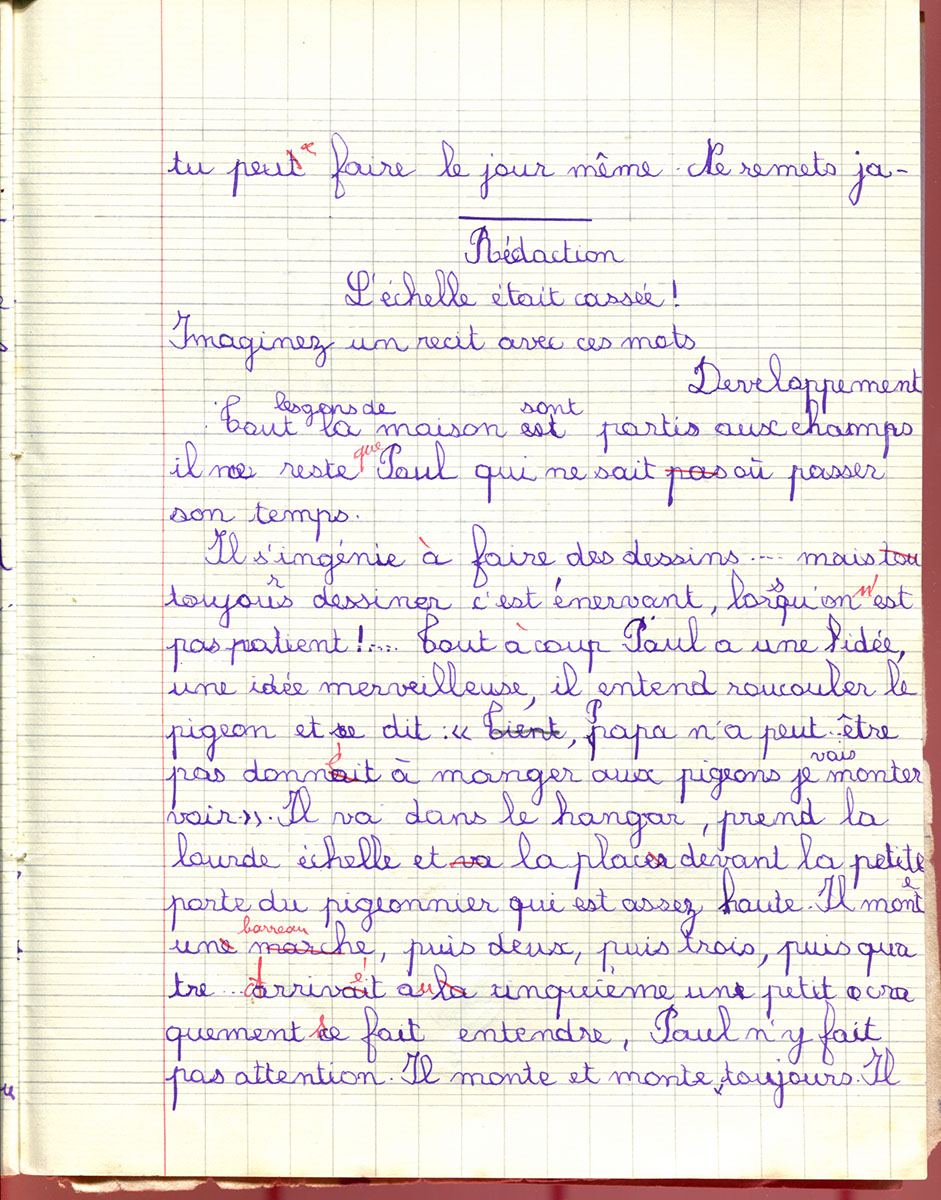 tu peux faire le jour même. Ne remets ja-
Rédaction
L'échelle était cassée !
Imaginez un recit avec ces mots
Developpement
les gens de sont
Tout la maison est partis aux champs
que
il ne reste Paul qui ne sait pas où passer
son temps.
Il s'ingénie à faire des dessins .... mais tou
toujours dessiner c'est énervant, lorsqu'on n'est
pas patient !.... Tout à coup Paul a une idée,
une idée merveilleuse, il entend roucouler le
pigeon et se dit : « Tient, Papa n'a peut-être
vais
pas donné à manger aux pigeons je monter
voir ». Il va dans le hangar, prend la
lourde échelle et va la place devant la petite
porte du pigeonnier qui est assez haute. Il monte
barreau
une marche, puis deux, puis trois, puis qua
tre ... arrivé au la cinquième un petit cra
quement se fait entendre, Paul n'y fait
pas attention. Il monte et monte toujours. Il